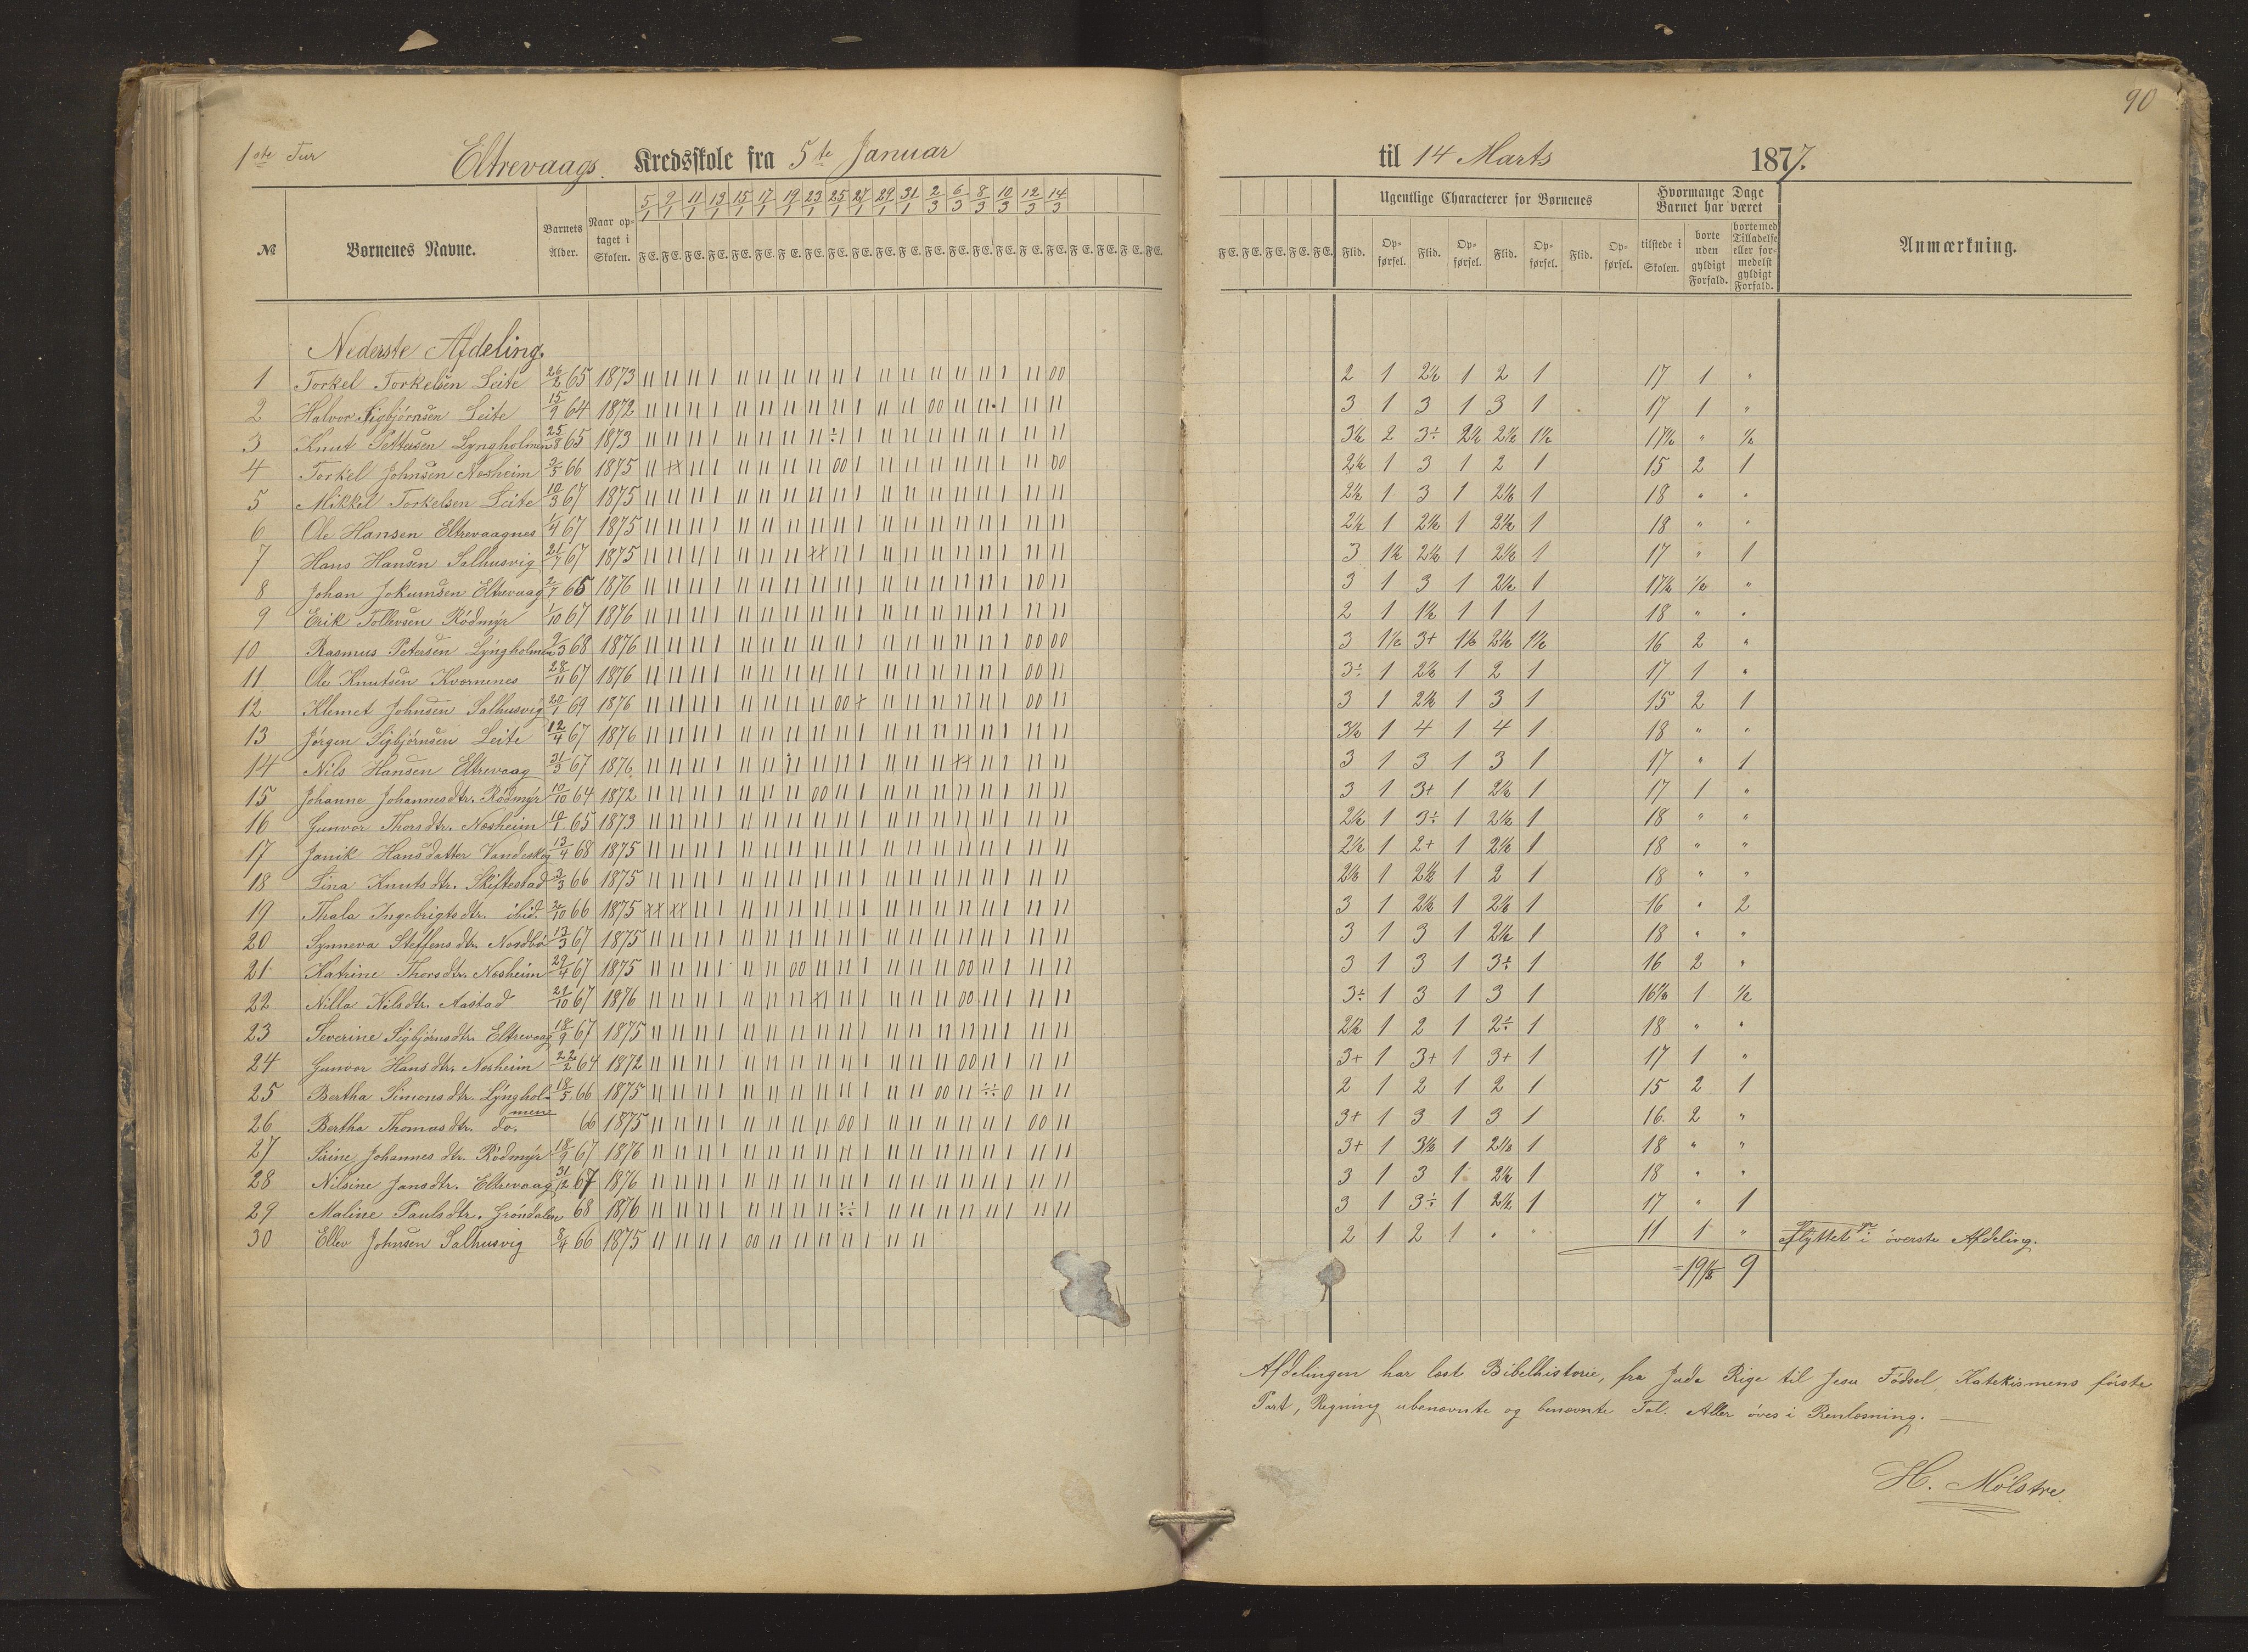 90
1ste Tur Eltrevaags Kredsskole fra 5te Januar til 14 Marts 1877.
№ Børnenes Navne. Barnets Alder. Naar optaget i Skolen. 5/1 9/1 11/1 13/1 15/1 17/1 19/1 23/1 25/1 27/1 29/1 31/1 2/3 6/3 8/3 10/3 12/3 14/3
F E. F E. F E. F E. F E. F E. F E. F E. F E. F E. F E. F E. F E. F E. F E. F E. F E. F E. F E. F E. F E. F E.
F E. F E. F E. F E. F E.
Ugentlige Characterer for Børnenes
Flid. Opførsel. Flid. Opførsel. Flid. Opførsel. Flid. Opførsel.
Hvormange Dage Barnet har været
tilstede i Skolen. borte uden gyldigt Forfald. borte med Tilladelse eller formedelst gyldigt Forfald.
Anmærkning.
Nederste Afdeling.
1 Torkel Torkelsen Leite 26/2 65 1873 2 1 2½ 1 2 1 17 1 "
2 Halvor Sigbjørnsen Leite 15/9 64 1872 3 1 3 1 3 1 17 1 "
3 Knut Pettersen Lyngholmen 25/8 65 1873 3½ 2 3÷ 2½ 2½ 1½ 17½ " ½
4 Torkel Johnsen Nesheim 66 1875 2½ 1 3 1 2 1 15 2 1
5 Mikkel Torkelsen Leite 10/3 67 1875 2½ 1 3 1 2½ 1 18 " "
6 Ole Hansen Eltrevaagnes 1/4 67 1875 2½ 1 2½ 1 2½ 1 18 " "
7 Hans Hansen Salhusvig 21/7 67 1875 3 1½ 2½ 1 2½ 1 17 " 1
8 Johan Jokumsen Eltrevaag 2/7 65 1876 3 1 3 1 2½ 1 17½ ½ "
9 Erik Tollevsen Rødmyr 1/10 67 1876 2 1 1½ 1 1 1 18 " "
10 Rasmus Petersen Lyngholmen 68 1876 3 1½ 3+ 1½ 2½ 1½ 16 2 "
11 Ole Knutsen Kvernenes 28/11 67 1876 3÷ 1 2½ 1 2 1 17 1 "
12 Klemet Johnsen Salhusvig 20/1 69 1876 3 1 2½ 1 3 1 15 2 1
13 Jørgen Sigbjørnsen Leite 12/4 67 1876 3½ 1 4 1 4 1 18 " "
14 Nils Hansen Eltrevaag 31/3 67 1876 3 1 3 1 3 1 17 " 1
15 Johanne Johannesdtr. Rødmyr 10/10 64 1872 3 1 3+ 1 2½ 1 17 1 "
16 Gunvor Thorsdtr. Nesheim 65 1873 2½ 1 3÷ 1 2½ 1 18 " "
17 Janik Hansdatter Vandeskog 13/4 68 1875 2½ 1 2+ 1 2½ 1 18 " "
18 Sina Knutsdtr. Skiftestad 3/3 66 1875 2½ 1 2½ 1 2 1 18 " "
19 Thala Ingebrigtsdtr. ibid. 66 1875 3 1 2½ 1 2½ 1 16 " 2
20 Synneva Steffensdtr. Nordbø 13/3 67 1875 3 1 3 1 2½ 1 18 " "
21 Katrine Thorsdtr. Nesheim 29/4 67 1875 3 1 3 1 3÷ 1 16 2 "
22 Nilla Nilsdtr. Aastad 29/10 67 1876 3÷ 1 3 1 3 1 16½ 1 ½
23 Severine Sigbjørnsdtr. Eltrevaag 18/9 67 1875 2½ 1 2 1 2÷ 1 18 " "
24 Gunvor Hansdtr. Nesheim 22/2 64 1872 3+ 1 3+ 1 3+ 1 17 1 "
25 Bertha Simonsdtr. Lyngholmen 18/5 66 1875 2 1 2 1 2 1 15 2 1
26 Bertha Thomasdtr. do. 66 1875 3+ 1 3 1 3 1 16 2 "
27 Sirine Johannesdtr. Rødmyr 18/9 67 1876 3+ 1 3½ 1 2½ 1 18 " "
28 Nilsine Jansdtr. Eltrevaag 31/12 67 1876 3 1 3 1 2½ 1 18 " "
29 Maline Paulsdtr. Grøndalen 68 1876 3 1 3÷ 1 2½ 1 17 " 1
30 Ellev Johnsen Salhusvig 8/4 66 1875 2 1 2 1 " " 11 1 " flyttet i øverste Afdeling.
=19½ 9
Afdelingen har læst Bibelhistorie, fra Juda Rige til Jesu Fødsel, Katekismens første
Part, Regning ubenævnte og benævnte Tal. Aller øves i Renlæsning.
H. Mølstre